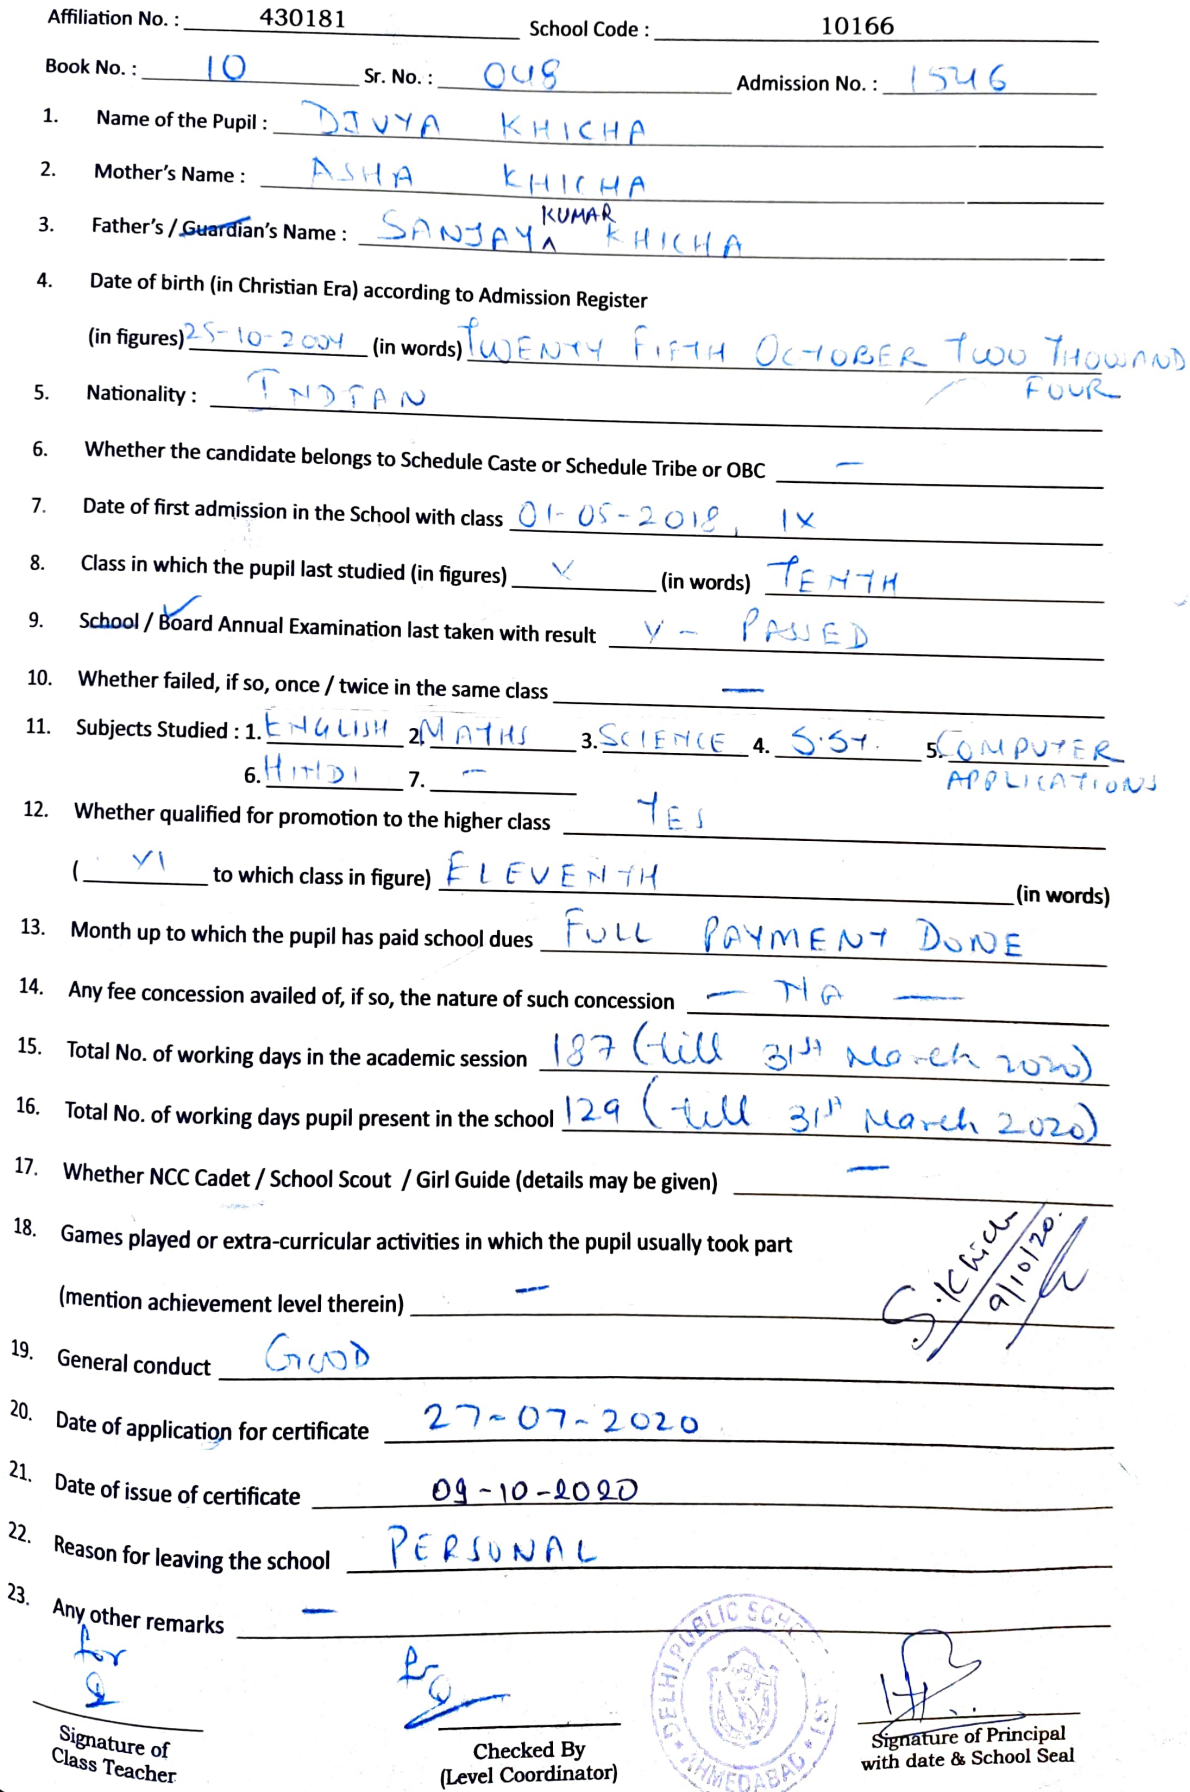 Affiliation No. : 430181 School Code : 10166
Book No. : 10 Sr. No. : 048 Admission No. : 1546
1. Name of the Pupil : DIVYA KHICHA
2. Mother's Name : ASHA KHICHA
KUMAR
3. Father's / Guardian's Name : SANJAY ^ KHICHA
4. Date of birth (in Christian Era) according to Admission Register
(in figures) 25-10-2004 (in words) TWENTY FIFTH OCTOBER TWO THOUSAND
FOUR
5. Nationality : INDIAN
6. Whether the candidate belongs to Schedule Caste or Schedule Tribe or OBC —
7. Date of first admission in the School with class 01-05-2018, IX
8. Class in which the pupil last studied (in figures) X (in words) TENTH
9. School / Board Annual Examination last taken with result X - PASSED
10. Whether failed, if so, once / twice in the same class —
11. Subjects Studied : 1. ENGLISH 2. MATHS 3. SCIENCE 4. S.ST. 5. COMPUTER
APPLICATIONS
6. HINDI 7. —
12. Whether qualified for promotion to the higher class YES
( XI to which class in figure) ELEVENTH (in words)
13. Month up to which the pupil has paid school dues FULL PAYMENT DONE
14. Any fee concession availed of, if so, the nature of such concession — NA —
15. Total No. of working days in the academic session 187 (till 31st March 2020)
16. Total No. of working days pupil present in the school 129 (till 31st March 2020)
17. Whether NCC Cadet / School Scout / Girl Guide (details may be given) —
18. Games played or extra-curricular activities in which the pupil usually took part
(mention achievement level therein) —
S.Khicha
9/10/20.
19. General conduct GOOD
20. Date of application for certificate 27-07-2020
21. Date of issue of certificate 09-10-2020
22. Reason for leaving the school PERSONAL
23. Any other remarks —
for
Signature of
Class Teacher
Checked By
(Level Coordinator)
DELHI PUBLIC SCHO
AHMEDABAD
Signature of Principal
with date & School Seal